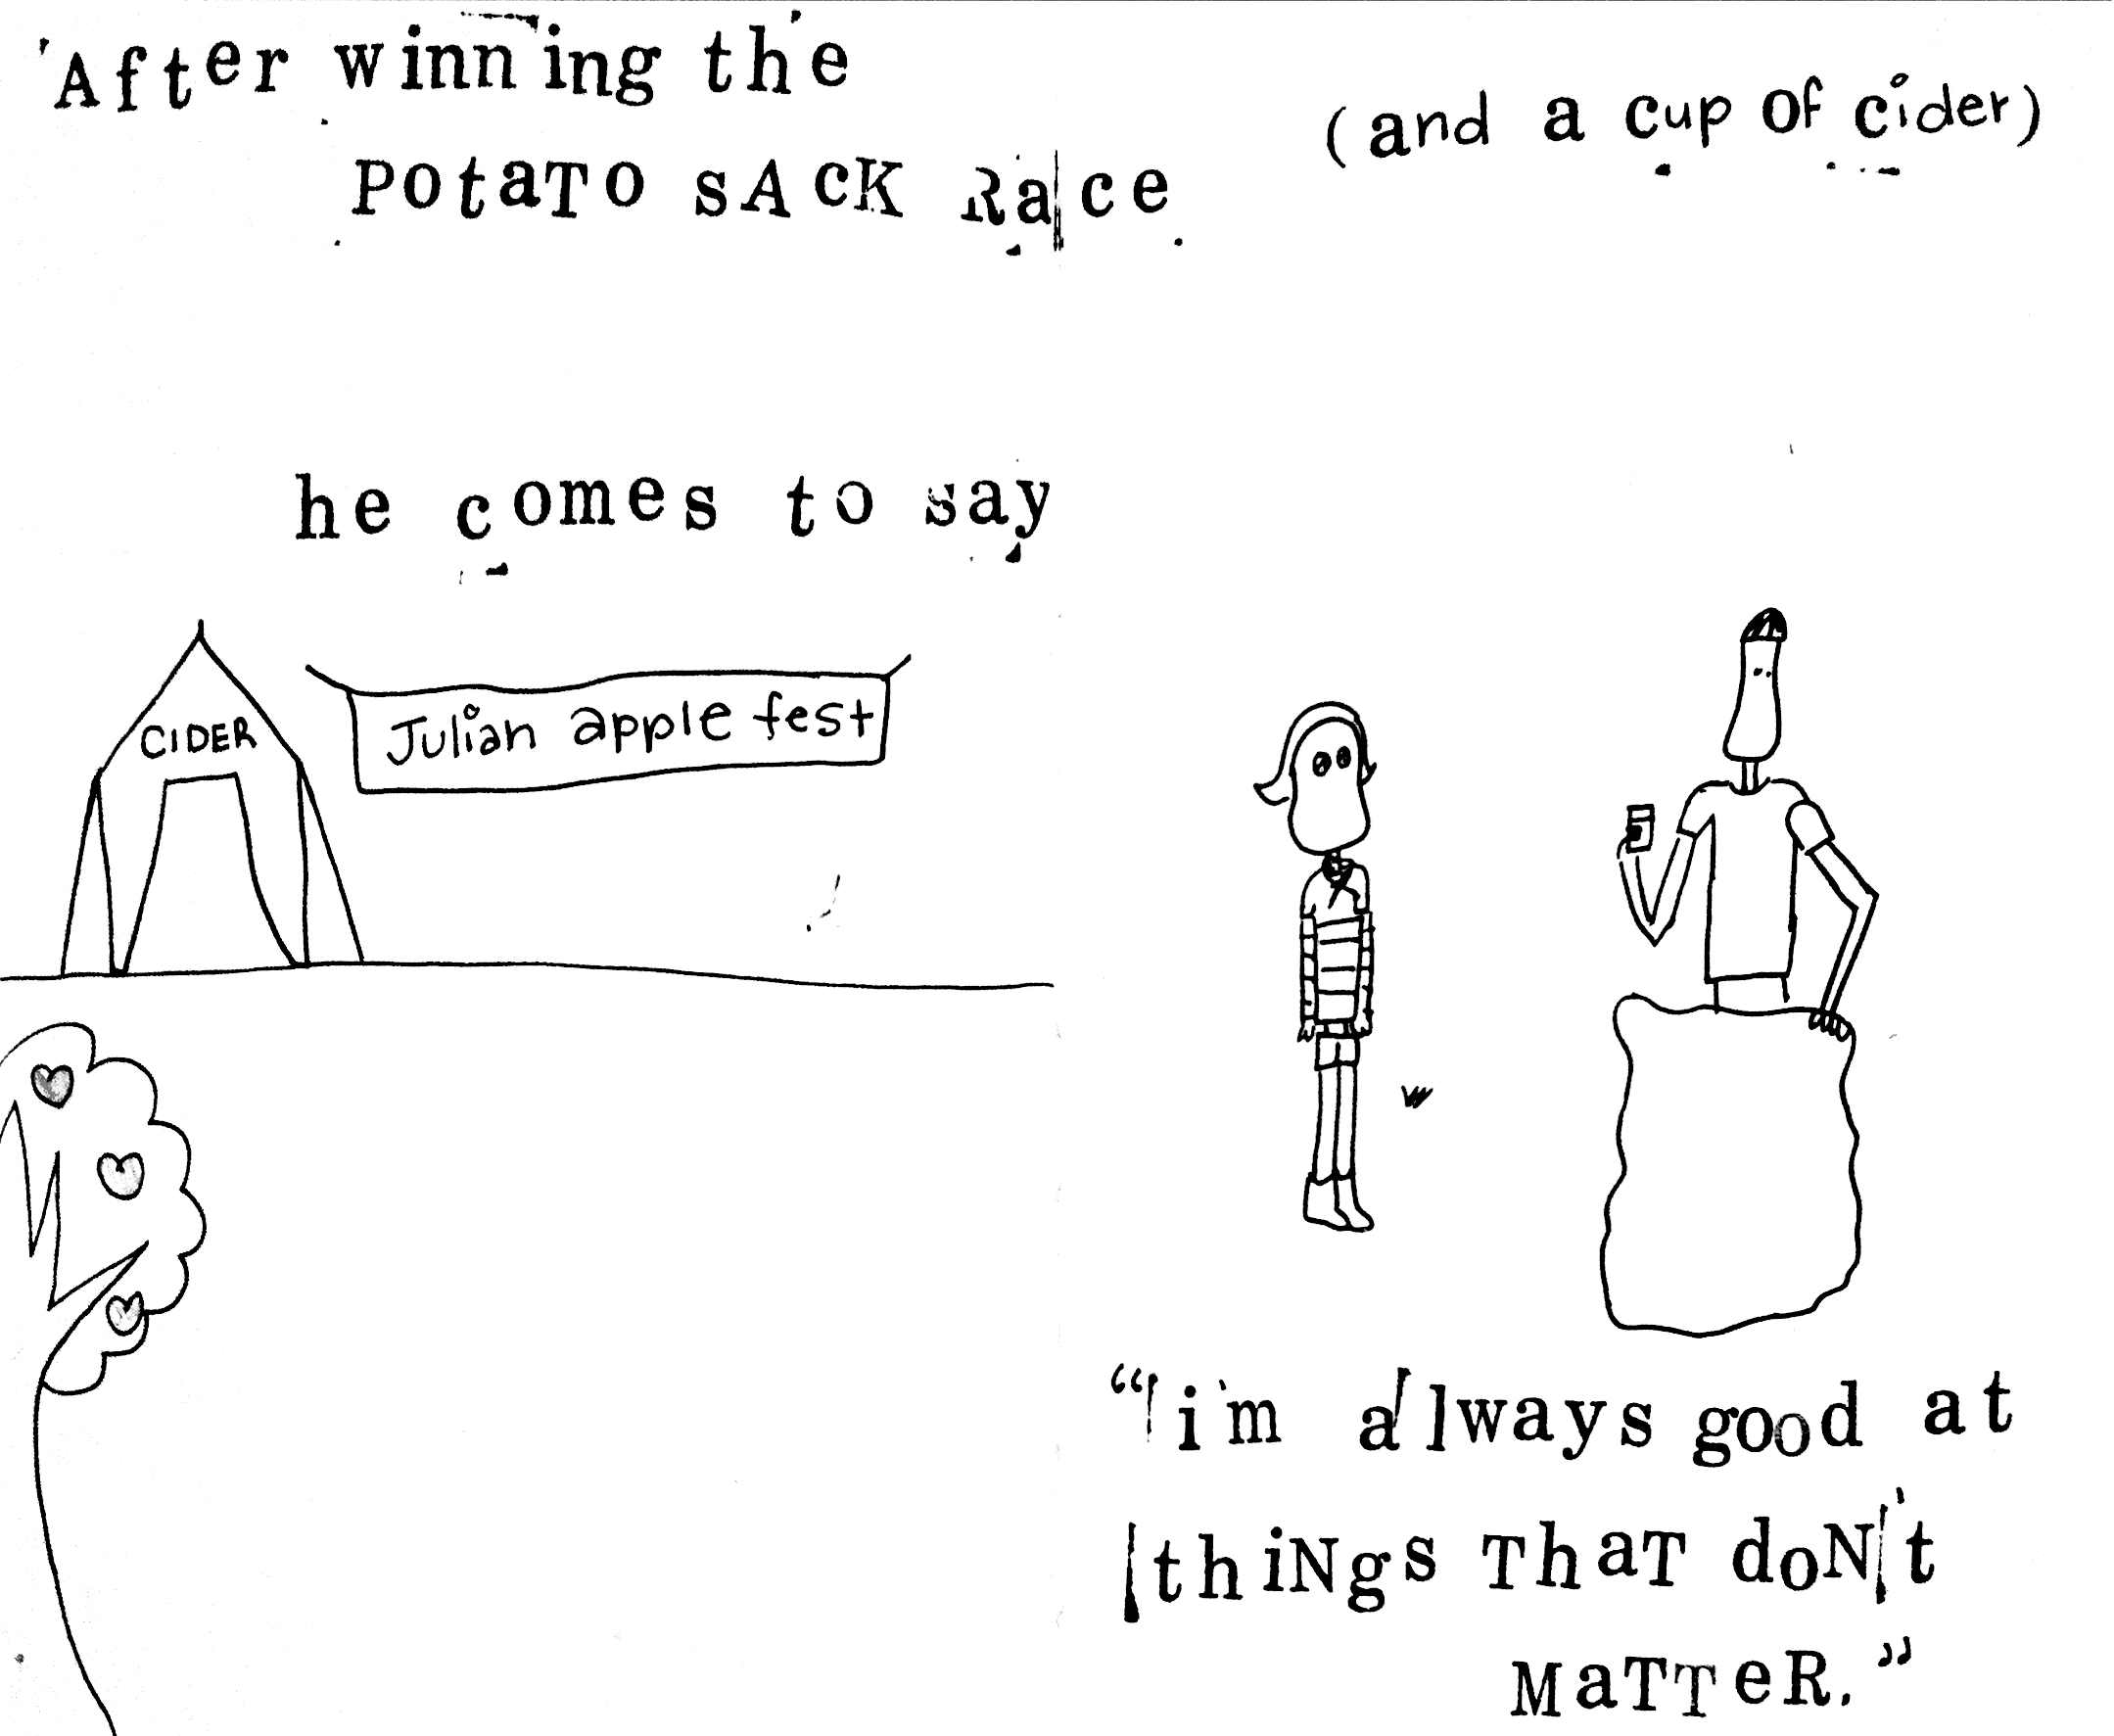 After winning the
PotaTO sACK Race
(and a cup of cider)
he comes to say
CIDER
Julian apple fest
“i'm always good at
thiNgs ThaT doN't
MaTTeR.”